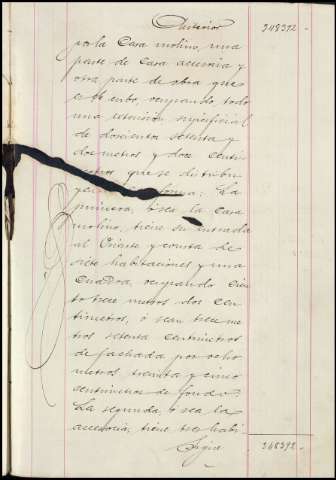 Anterior 348392 -
por la Casa molino, una
parte de Casa accesoria y
otra parte de obra que
es el cubo, ocupando, todo
una estension superficial
de doscientos setenta y
dos metros y doce centi-
metros, que se distribu
yen forma: La
primera, ó sea la Casa
molino, tiene su entrada
al Oriente y consta de
siete habitaciones y una
cuadra, ocupando cien
to trece metros dos cen
timetros, ó sean trece me
tros setenta centimetros
de fachada por ocho
metros treinta y cinco
centimetros de fondo.
La segunda ó sea la
accesoria, tiene tres habi
Sigue 348392 -